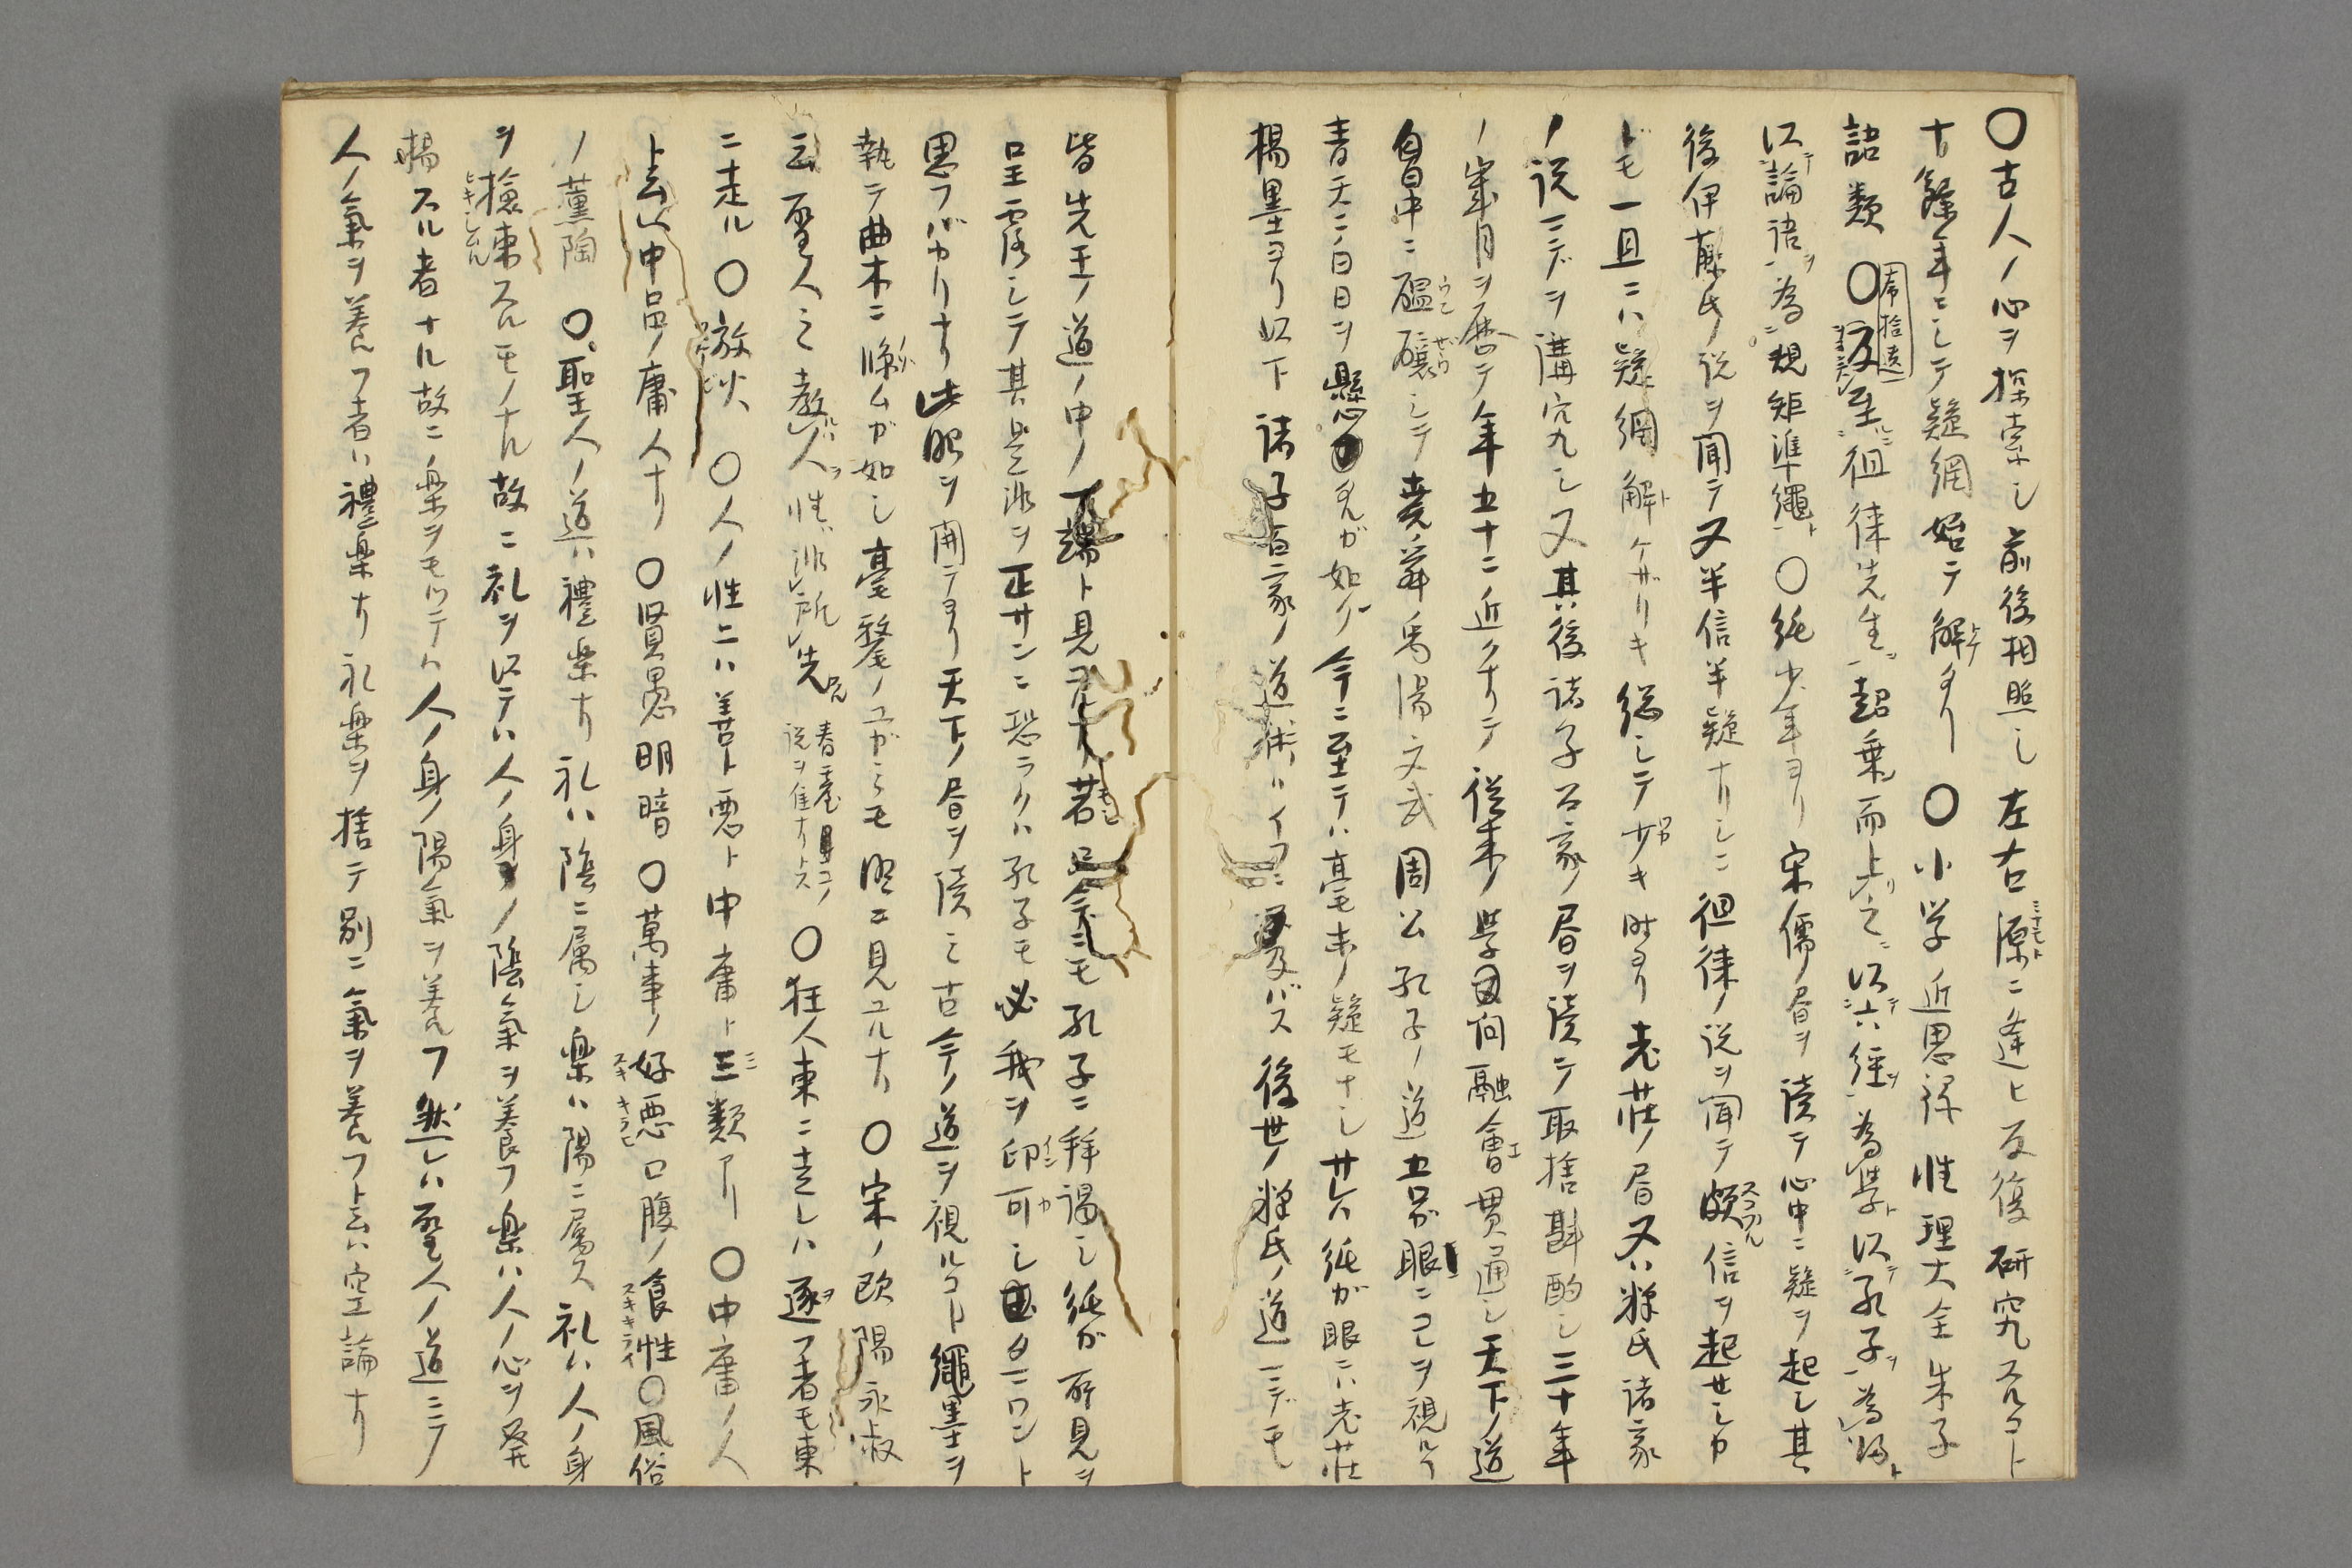 〇古人ノ心ヲ探索シ前後相照シ左右源ニ逢ヒ反復研究スルコト
十餘年ニシテ疑網始テ解タリ 〇小学近思録性理大全朱子
語類 〇及至徂徠先生超乗而上之以六經為學以孔子為歸
以論語為規矩準繩 〇純少年ヨリ宋儒ノ書ヲ讀テ心中ニ疑ヲ起シ其
後伊藤氏ノ説ヲ聞テ又半信半疑ナリシニ徂徠ノ説ヲ聞テ頗信ヲ起セシカ
ドモ一旦ニハ疑網解ケザリキ総シテ少キ時ヨリ老荘ノ書又ハ釈氏諸家
ノ説ニデヲ講究シ又其後諸子百家ノ書ヲ讀ミテ取捨斟酌シ三十年
ノ歳月ヲ歴テ年五十ニ近クナリテ從来ノ學問融會貫通シ天下ノ道
胷中ニ醞釀シテ堯舜禹湯文武周公孔子ノ道吾ガ眼ニコレヲ視ルヿ
青天ニ白日ヲ懸タルガ如ク今ニ至テハ毫末ノ疑モナシ サレバ純ガ眼ニハ老荘
楊墨ヨリ以下諸子百家ノ道術ハイフニ及バス後世ノ釈氏ノ道ニデモ
皆先王ノ道ノ中ノ一端ト見ユルナリ若今ニモ孔子ニ拜謁シ純ガ所見ヲ
呈露シテ其是非ヲ正サンニ恐ラクハ孔子モ必我ヲ印可シタマワント
思フバカリナリ此眼ヲ開テヨリ天下ノ書ヲ讀ミ古今ノ道ヲ視ルコト繩墨ヲ
執テ曲木ニ臨ムガ如シ毫釐ノユガミモ明ニ見ユルナリ 〇宋ノ欧陽永叔
云聖人之教人性非所先 春臺コノ説ヲ佳ナリトス 〇狂人東ニ走レハ逐フ者モ東
ニ走ル 〇 〇人ノ性ニハ善ト悪ト中庸ト三類アリ 〇中庸ノ人
ト云ハ中品ノ庸人ナリ 〇賢愚明暗 〇萬事ノ好悪口腹ノ食性〇風俗
ノ薫陶 〇聖人ノ道ハ禮樂ナリ礼ハ陰ニ属シ樂ハ陽ニ属ス礼ハ人ノ身
ヲ撿束スルモノナル故ニ礼ヲ以テハ人ノ身ノ陰氣ヲ養フ樂ハ人ノ心ヲ発
暢スル者ナル故ニ樂ヲモツテハ人ノ身ノ陽氣ヲ養フ然レハ聖人ノ道ニテ
人ノ氣ヲ養フ者ハ禮樂ナリ礼樂ヲ捨テ別ニ氣ヲ養フト云ハ空論ナリ